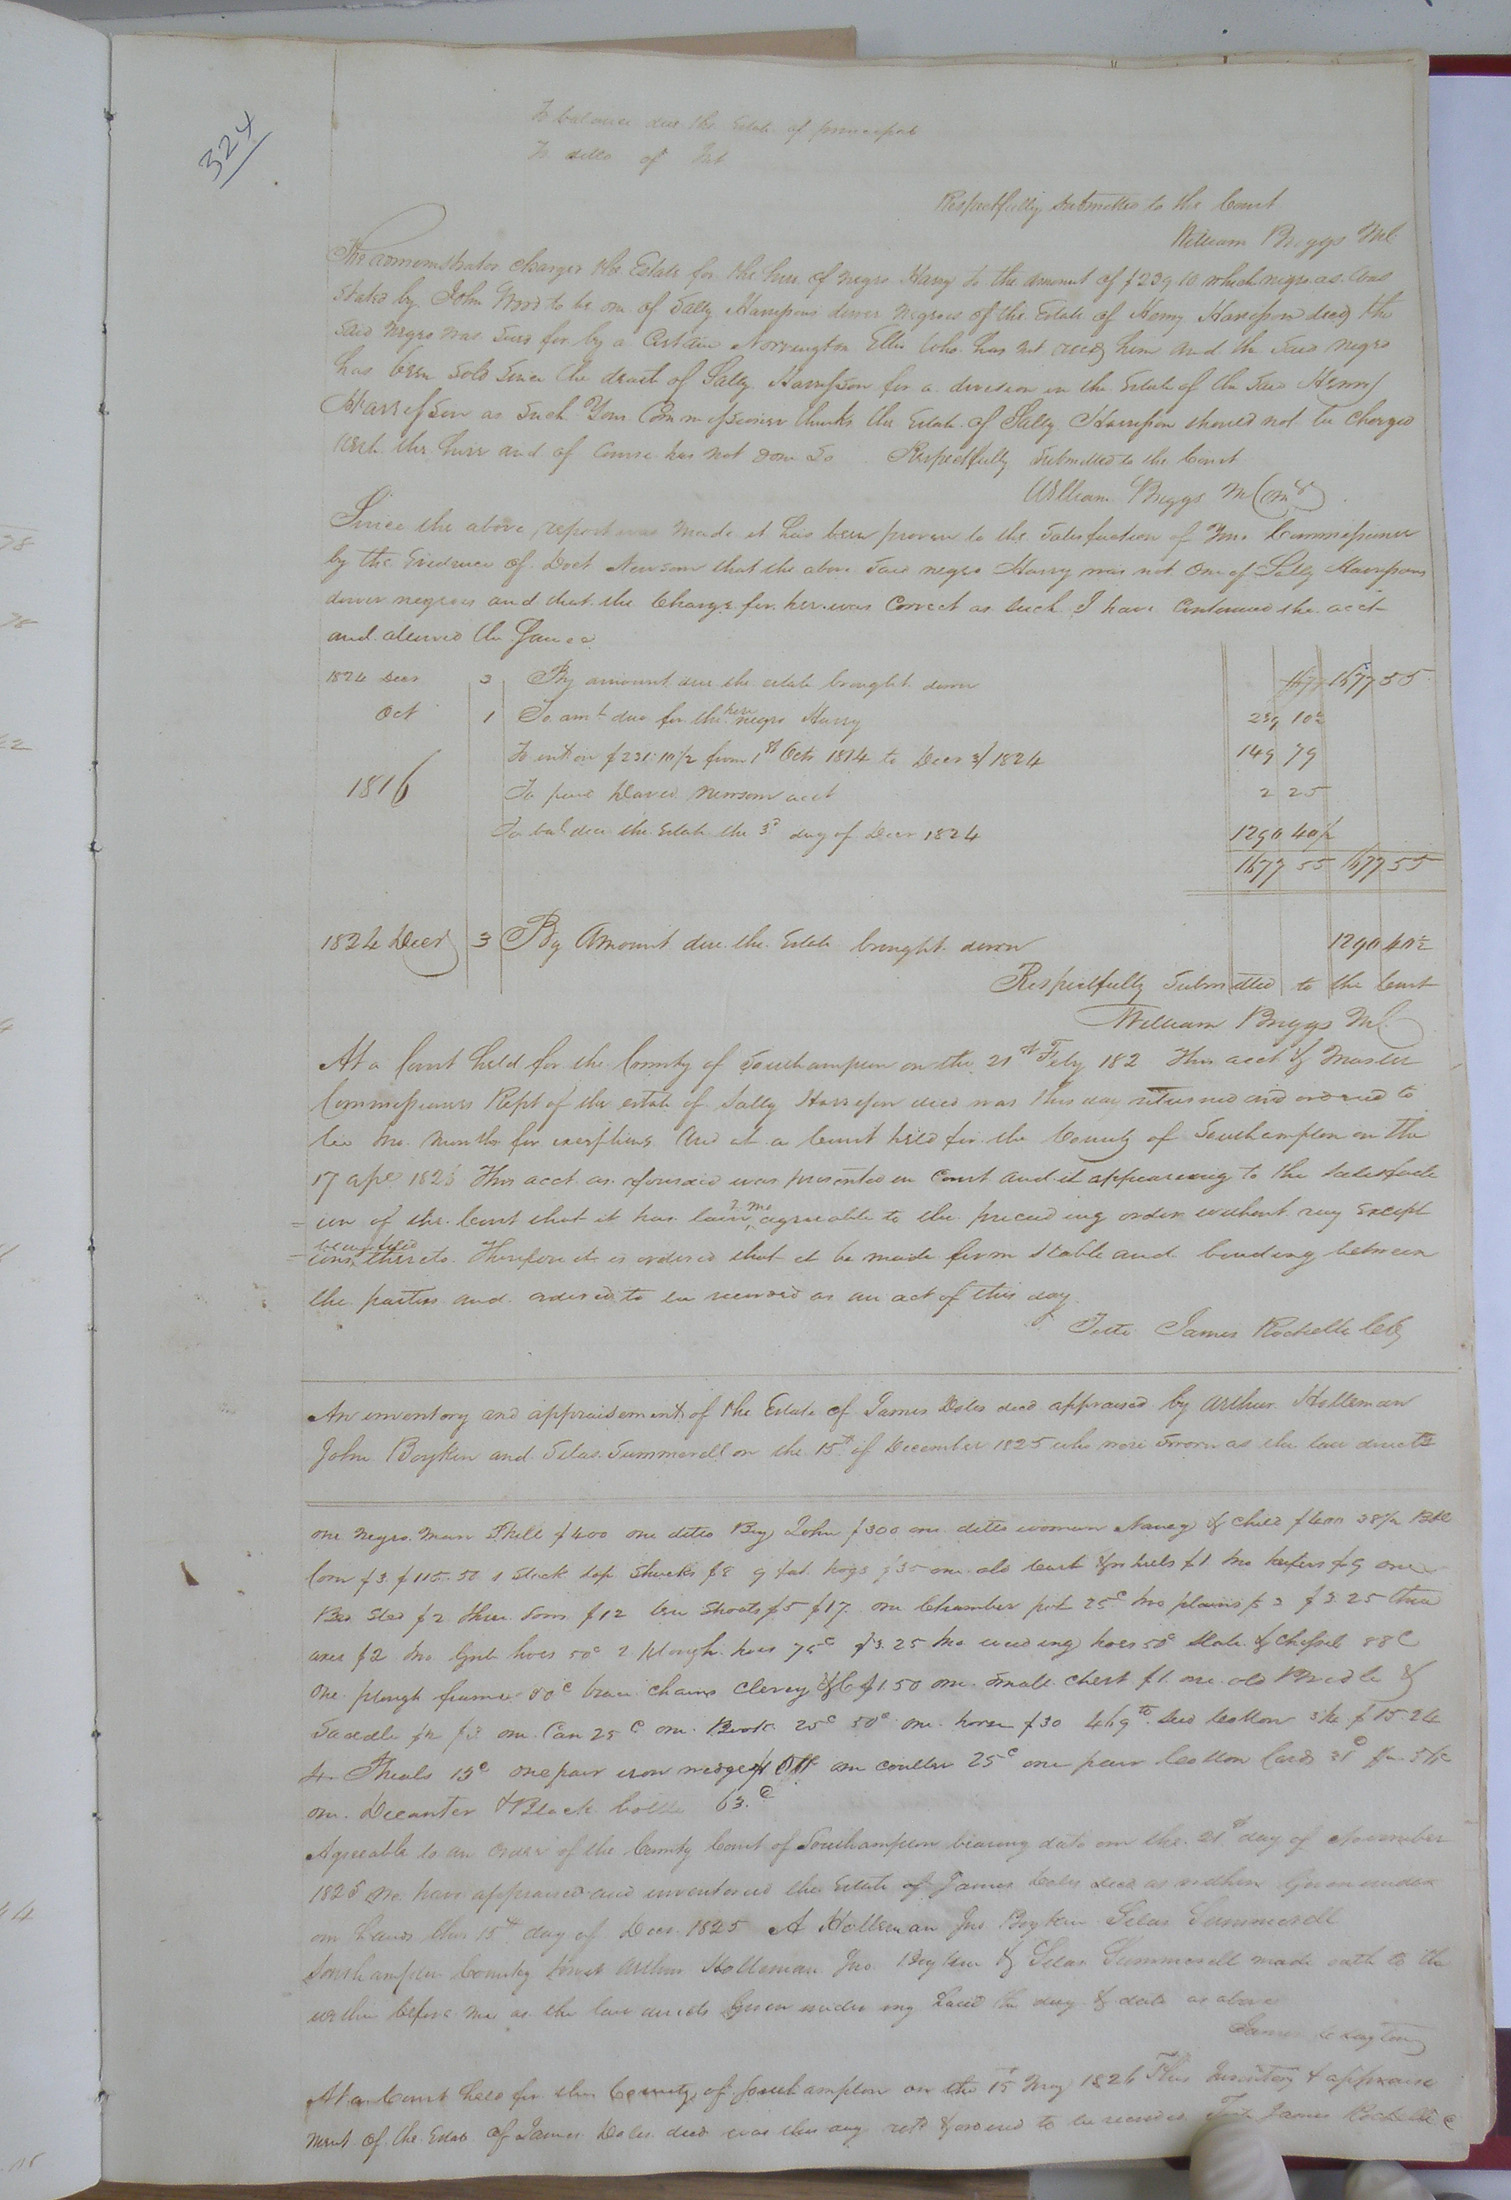 324
To balance due the Estate of principal
To ditto of Int
Respectfully submitted to the Court
William Briggs M C
The administrator charges the Estate for the hire of negro Harry to the amount of $239 10 which negro as was
stated by John Wood to be one of Sally Harrisons dower negroes of the Estate of Henry Harrison decd the
said negro was sued for by a Certain Norvington Ellis who has not recd him and the said negro
has been sold since the death of Sally Harrison for a division in the Estate of the said Henry
Harrison as such Your Commissioner thinks the Estate of Sally Harrison should not be charged
with the hire and of Course has not done so Respectfully submitted to the Court
William Briggs M Comr
Since the above report was made it has been proven to the satisfaction of Your Commissioner
by the Evidence of Doct Newsom that the above said negro Harry was not One of Sally Harrisons
dower negroes and that the Charge for her was Correct as such I have Continued the acct
and allowed the Same
1824 Decr 3 By amount due the estate brought down 1677 1677 55
Oct 1 To amt due for the hire negro Harry 239 10½
To int on $231:10½ from 1st Octr 1814 to Decr 3d 1824 149 79
1816 To paid David Newsom acct 2 25
To bal due the Estate the 3d day of Decr 1824 1290 40½
1677 55 1677 55
1824 Decr 3 By Amount due the Estate brought down 1290 40½
Respectfully Submitted to the Court
William Briggs M C
At a Court held for the County of Southampton on the 21st Feby 182 This acct & Master
Commissioners Rept of the estate of Sally Harrison decd was this day returned and ordered to
lie two months for exceptions And at a Court held for the County of Southampton on the
17 apl 1826 This acct as aforesaid was presented in Court and it appearing to the satisfact
= ion of the Court that it has lain 2 mo agreeable to the preceeding order without any Except
= ions being filed thereto Therefore it is ordered that it be made firm stable and binding between
the parties and ordered to be recorded as an act of this day
Teste James Rochelle CC
An inventory and appraisement of the Estate of James Doles decd appraised by Arthur Holleman
John Boykin and Silas Summerell on the 15th of December 1825 who were sworn as the law directs
one negro man Phill $400 one ditto Boy John $300 one ditto woman Nancy & child $400 38½ Bbl
Corn $3 $115.50 1 Stack top Shucks $8 9 fat hogs $35 one old Cart & wheels $1 two heifers $9 one
Bed sted $2 three sows $12 ten Shoats $5 $17 one Chamber pot 25c two plains $3 $3.25 three
axes $2 two Grub hoes 50c 2 plough hoes 75c $3.25 two weeding hoes 50c & chissel 88c
One plough frame 50c trace chains Clevey &C $1.50 one small chest $1 one old Bridle &
Saddle $2 $3 one Can 25c one Book 25c 50c one horse $30 469 lb seed Cotton $15.24
13c one pair iron wedges one coulter 25c one pair Cotton Cards
one Decanter & Black bottle 63.c
Agreeable to an order of the County Court of Southampton bearing date on the 21st day of November
1825 we have appraised and inventoried the Estate of James Doles decd as within Given under
our hands this 15th day of Decr 1825 A Holleman Jno Boykin Silas Summerell
Southampton County towit Arthur Holleman Jno Boykin & Silas Summerell made oath to the
within before me as the law directs Given under my hand the day & date as above
James Clayton
At a Court held for the County of Southampton on the 15 May 1826 This Inventory & appraise
ment of the Estate of James Doles decd was this day retd & ordered to be recorded Teste James Rochelle C